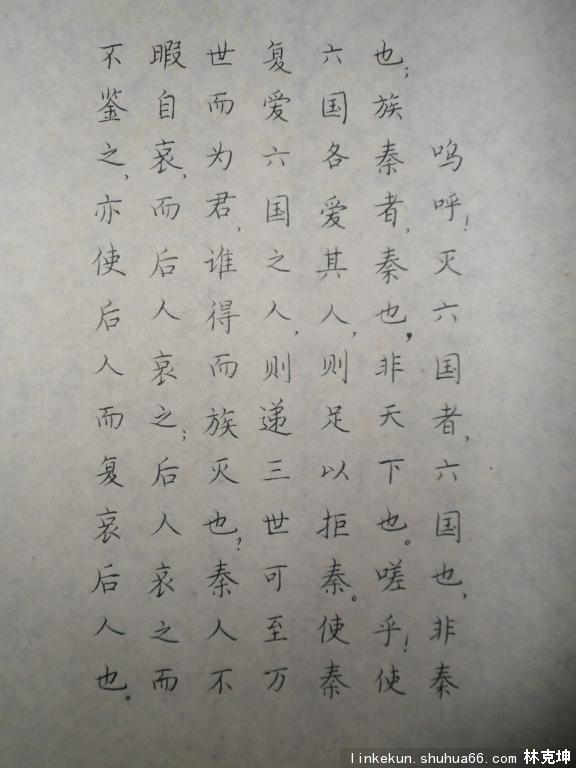 呜呼！灭六国者，六国也，非秦
也；族秦者，秦也，非天下也。嗟乎！使
六国各爱其人，则足以拒秦。使秦
复爱六国之人，则递三世可至万
世而为君，谁得而族灭也？秦人不
暇自哀，而后人哀之；后人哀之而
不鉴之，亦使后人而复哀后人也。
linkekun.shuhua66.com 林克坤